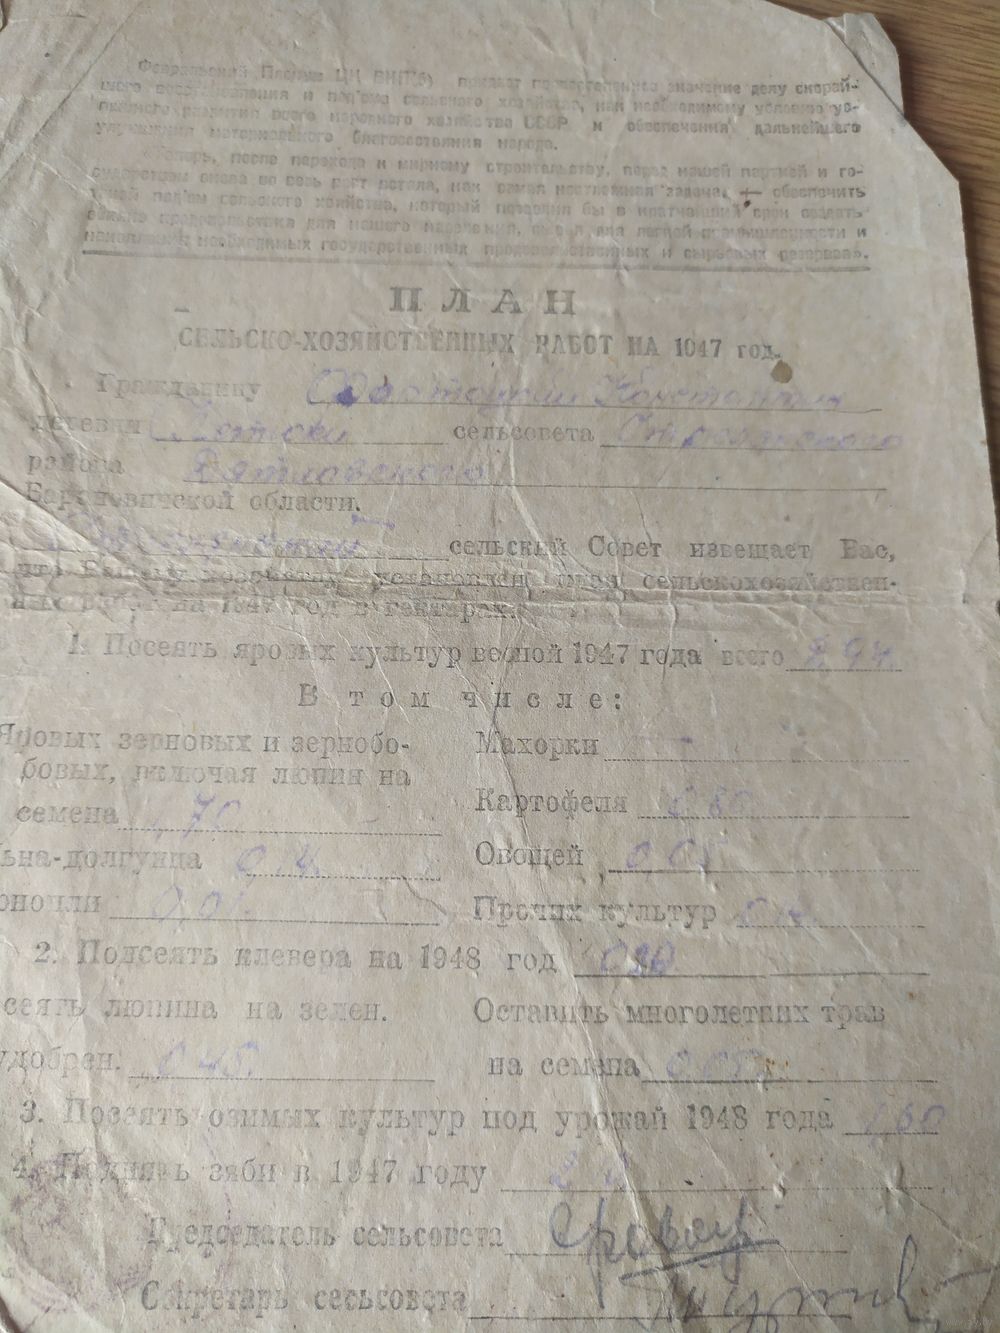 Февральский Пленум ЦК ВКП(б) придает первостепенное значение делу скорей-
шего восстановления и под'ема сельского хозяйства, как необходимому условию ус-
пешного развития всего народного хозяйства СССР и обеспечения дальнейшего
улучшения материального благосостояния народа.
«Теперь, после перехода к мирному строительству, перед нашей партией и го-
сударством снова во весь рост встала, как самая неотложная задача, — обеспечить
такой под'ем сельского хозяйства, который позволил бы в кратчайший срок создать
обилие продовольствия для нашего населения, сырья для легкой промышленности и
накопление необходимых государственных продовольственных и сырьевых резервов».
ПЛАН
СЕЛЬСКО-ХОЗЯЙСТВЕННЫХ РАБОТ НА 1947 год.
Гражданину Константин
деревни сельсовета
района Дятловского
Барановичской области.
сельский Совет извещает Вас,
что Вашему хозяйству установлен план сельскохозяйствен-
ных работ на 1947 год в гектарах.
1. Посеять яровых культур весной 1947 года всего 2,94
В том числе:
Яровых зерновых и зернобо-
бовых, включая люпин на
семена 1,70
Льна-долгунца 0,14
Конопли 0,01
Махорки —
Картофеля 0,80
Овощей 0,05
Прочих культур
2. Подсеять клевера на 1948 год
сеять люпина на зелен.
удобрен. 0,45
Оставить многолетних трав
на семена 0,05
3. Посеять озимых культур под урожай 1948 года 1,80
4. Поднять зяби в 1947 году
Председатель сельсовета
Секретарь сельсовета